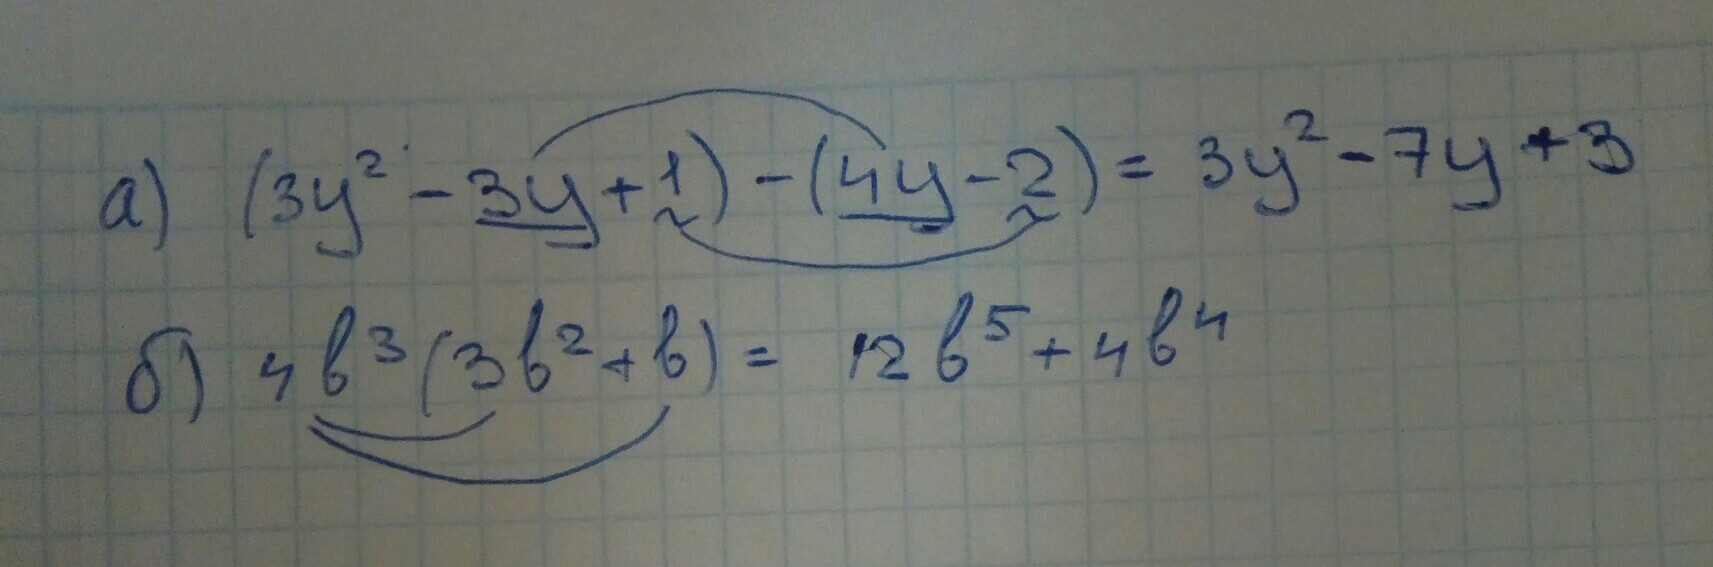 а) (3y² - 3y + 1) - (4y - 2) = 3y² - 7y + 3
б) 4b³(3b² + b) = 12b⁵ + 4b⁴